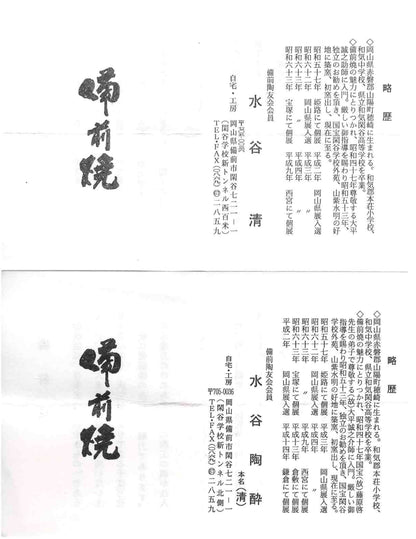 略歴
◇岡山県赤磐郡山陽町穂崎に生まれる。和気郡本荘小学校、
和気中学校、県立和気閑谷高等学校を卒業。
◇備前焼の魅力にとりつかれ、昭和四十七年尊敬する大平
誠之助師に入門。厳しい御指導を賜わり昭和五十三年、
独立のお勧めを頂き、国宝閑谷学校外苑、山紫水明の好
地に築窯、初窯出し、現在に至る。
昭和五十七年 姫路にて個展
昭和六十二年 岡山県展入選
昭和六十三年 〃
昭和六十三年 宝塚にて個展
平成二年 岡山県展入選
平成三年 〃
平成四年 〃
平成九年 西宮にて個展
備前陶友会会員
水谷 清
自宅・工房
岡山県備前市閑谷七二一-一
(閑谷学校新トンネル西百米)
備前焼
略歴
◇岡山県赤磐郡山陽町穂崎に生まれる。和気郡本荘小学校、
和気中学校、県立和気閑谷高等学校を卒業。
◇備前焼の魅力にとりつかれ、昭和四十七年国宝(故)藤原啓
先生の弟子で尊敬する(故)大平誠之介師に入門。厳しい御
指導を賜わり昭和五十三年、独立のお勧めを頂き、国宝閑谷
学校外苑、山紫水明の好地に築窯、初窯出し、現在に至る。
昭和五十七年 姫路にて個展
昭和六十二年 岡山県展入選
昭和六十三年 〃
昭和六十三年 宝塚にて個展
平成二年 岡山県展入選
平成三年 〃
平成四年 〃
平成九年 西宮にて個展
平成十三年 倉敷にて個展
平成十四年 鎌倉にて個展
備前陶友会会員
水谷 陶酔
本名(清)
自宅・工房
〒705-0036
岡山県備前市閑谷七二一-一
(閑谷学校新トンネル北側)
備前焼